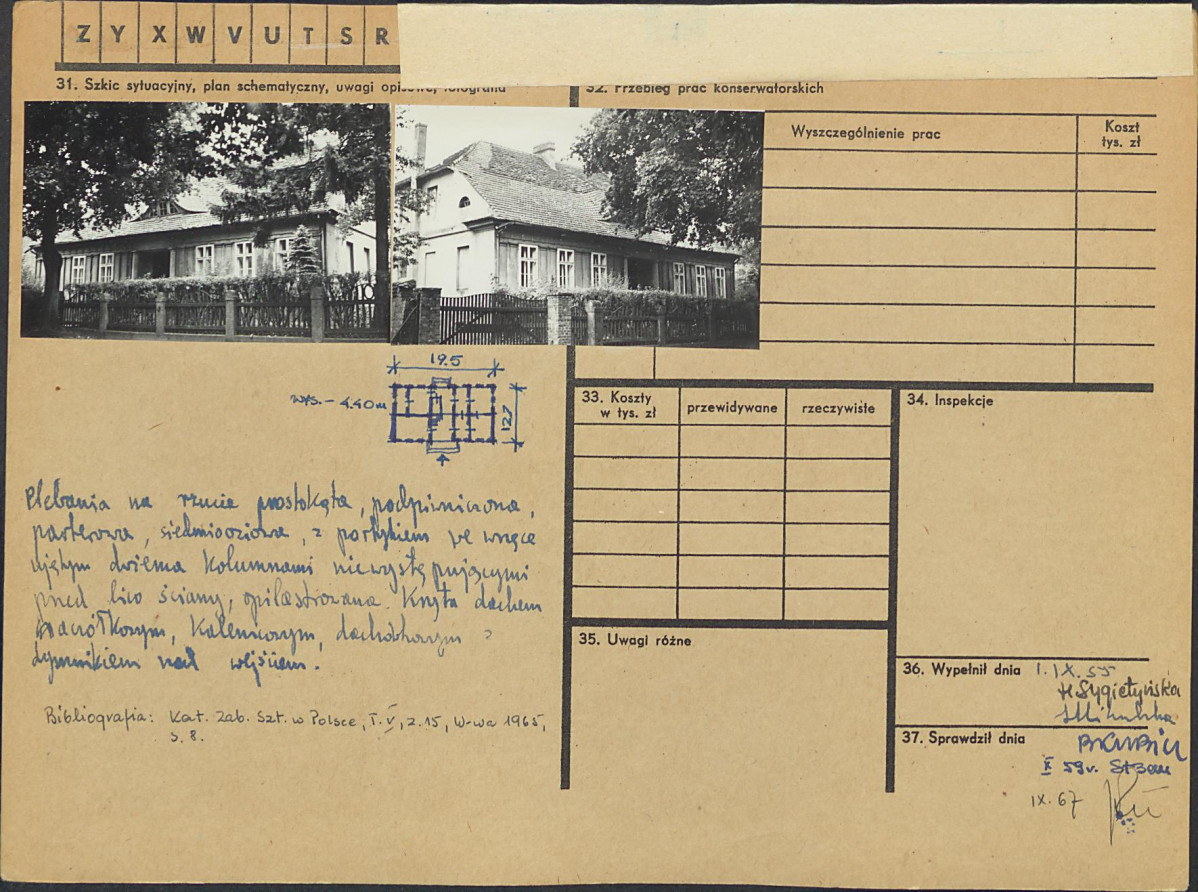 Z Y X W V U T S R
31. Szkic sytuacyjny, plan schematyczny, uwagi opisowe, fotografia
32. Przebieg prac konserwatorskich
Wyszczególnienie prac
Koszt
tys. zł
19.5
wys. – 4.40 m
12.7
Plebania na rzucie prostokąta, podpiwniczona,
parterowa, siedmioosiowa, z portykiem we wnęce
ujętym dwiema kolumnami niewystępującymi
przed lico ściany, opilastrowana. Kryta dachem
naczółkowym, kalenicowym, dachówkowym z
dymnikiem nad wejściem.
Bibliografia: Kat. Zab. Szt. w Polsce, T. V, z. 15, W-wa 1965,
s. 8.
33. Koszty
w tys. zł
przewidywane
rzeczywiste
34. Inspekcje
35. Uwagi różne
36. Wypełnił dnia 1.IX.55
H Sygietyńska
37. Sprawdził dnia
X 59 r.
IX. 67